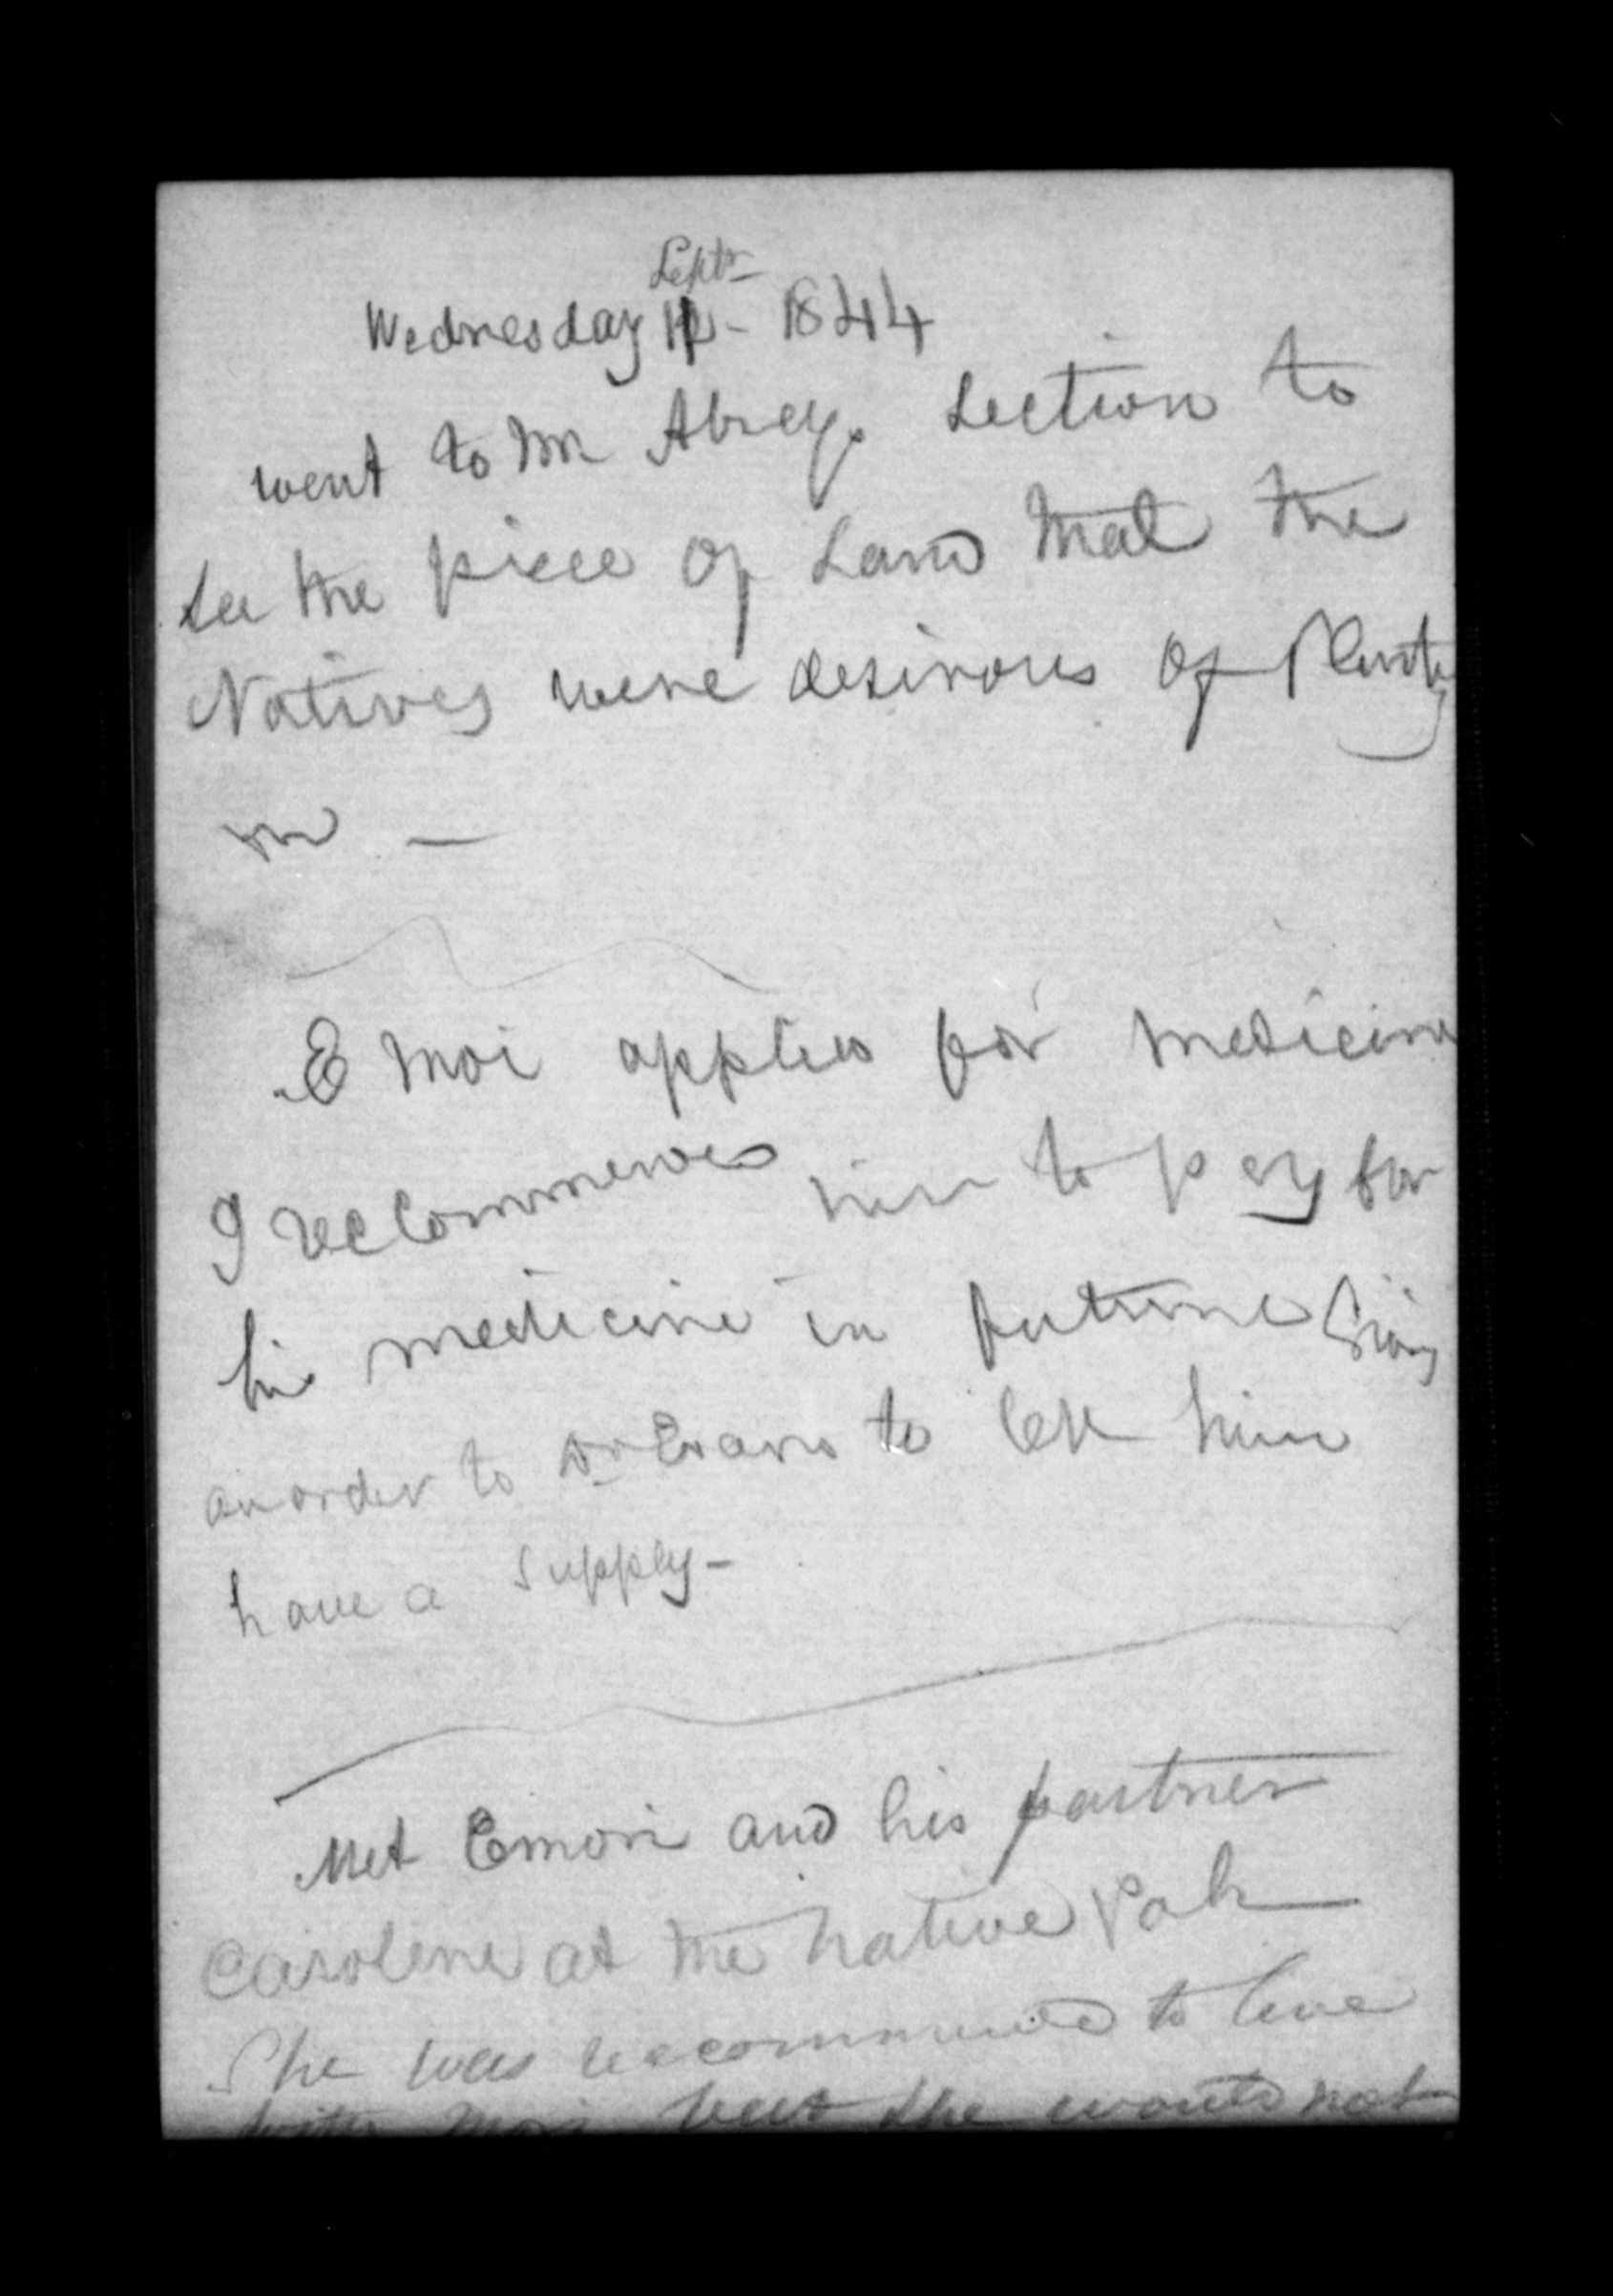 Septr
Wednesday 11 - 1844
went to Mr Section to
see the piece of Land that the
Natives were desirous of Planty
on —
E Moi applied for medicine
I reccommended him to pay for
his medicine in future Giving
an order to Dr Evans to let him
have a supply -
Met Emori and his partner
Caroline at the native Pah
She was reccommended to live
with Moi but she would not